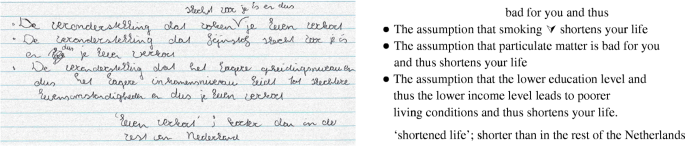 slecht voor je is en dus
• De veronderstelling dat roken V je leven verkort
• De veronderstelling dat fijnstof slecht voor je is
en dus je leven verkort
• De veronderstelling dat het lagere opleidingsniveau en
dus het lagere inkomensniveau leidt tot slechtere
levensomstandigheden en dus je leven verkort
'leven verkort' ; korter dan in de
rest van Nederland
bad for you and thus
• The assumption that smoking ⋎ shortens your life
• The assumption that particulate matter is bad for you
and thus shortens your life
• The assumption that the lower education level and
thus the lower income level leads to poorer
living conditions and thus shortens your life.
‘shortened life’; shorter than in the rest of the Netherlands